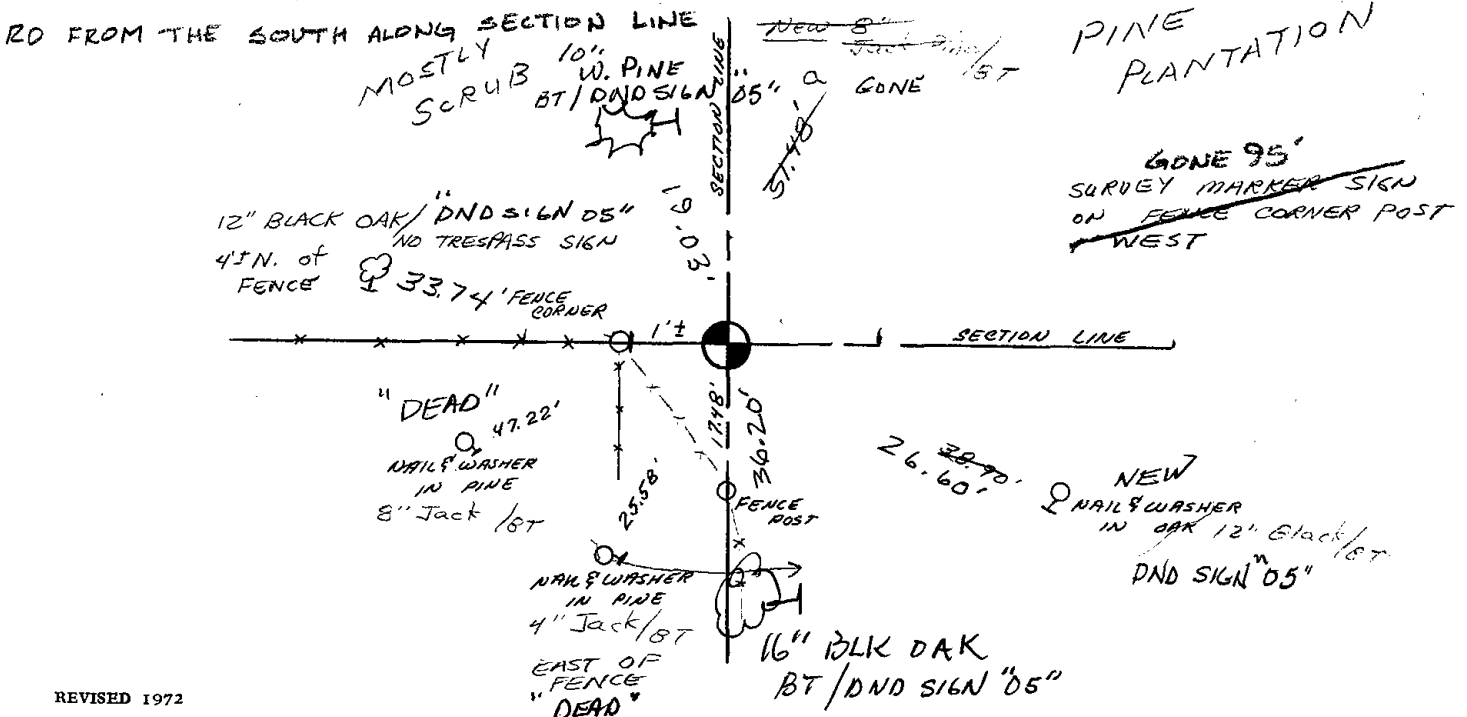 RD FROM THE SOUTH ALONG SECTION LINE
MOSTLY
SCRUB
10"
W. PINE
BT/DND SIGN "05"
SECTION LINE
NEW 8"
Jack Pine/BT
GONE
51.48'
PINE
PLANTATION
GONE 95'
SURVEY MARKER SIGN
ON FENCE CORNER POST
WEST
12" BLACK OAK/"DND SIGN 05"
NO TRESPASS SIGN
4'± N. of
FENCE
33.74'
FENCE
CORNER
19.03'
1'±
SECTION LINE
"DEAD"
47.22'
NAIL & WASHER
IN PINE
8" Jack /BT
17.48'
36.20'
FENCE
POST
25.58'
NAIL & WASHER
IN PINE
4" Jack/BT
EAST OF
FENCE
"DEAD"
38.90'
26.60'
NEW
NAIL & WASHER
IN OAK 12" Black/BT
DND SIGN "05"
16" BLK OAK
BT/DND SIGN "05"
REVISED 1972